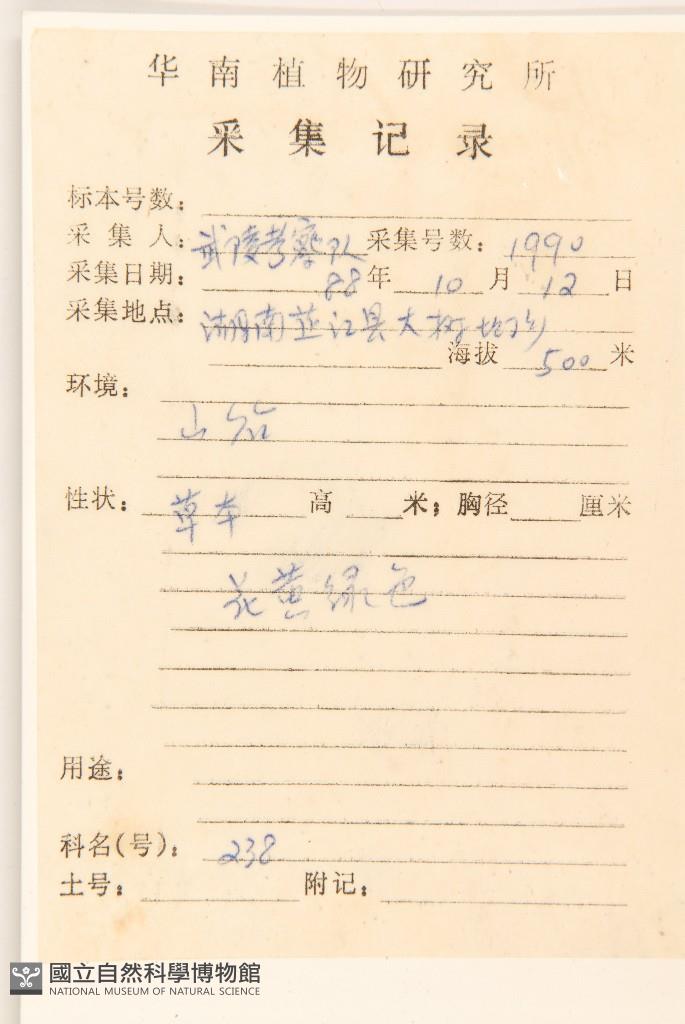 华南植物研究所
采集记录
标本号数：
采集人：武陵考察队 采集号数：1990
采集日期：88年10月12日
采集地点：湖南芷江县大树坳乡
海拔500米
环境：
山谷
性状：草本 高 米；胸径 厘米
花黄绿色
用途：
科名(号)：238
土号： 附记：
國立自然科學博物館
NATIONAL MUSEUM OF NATURAL SCIENCE